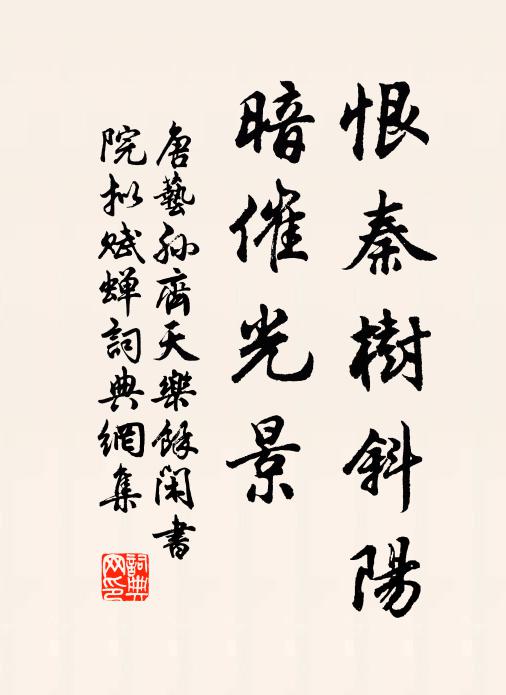 恨秦樹斜陽
暗催光景
唐藝孫齊天樂餘閑書
院拟赋蝉詞典網集
詞典
网印